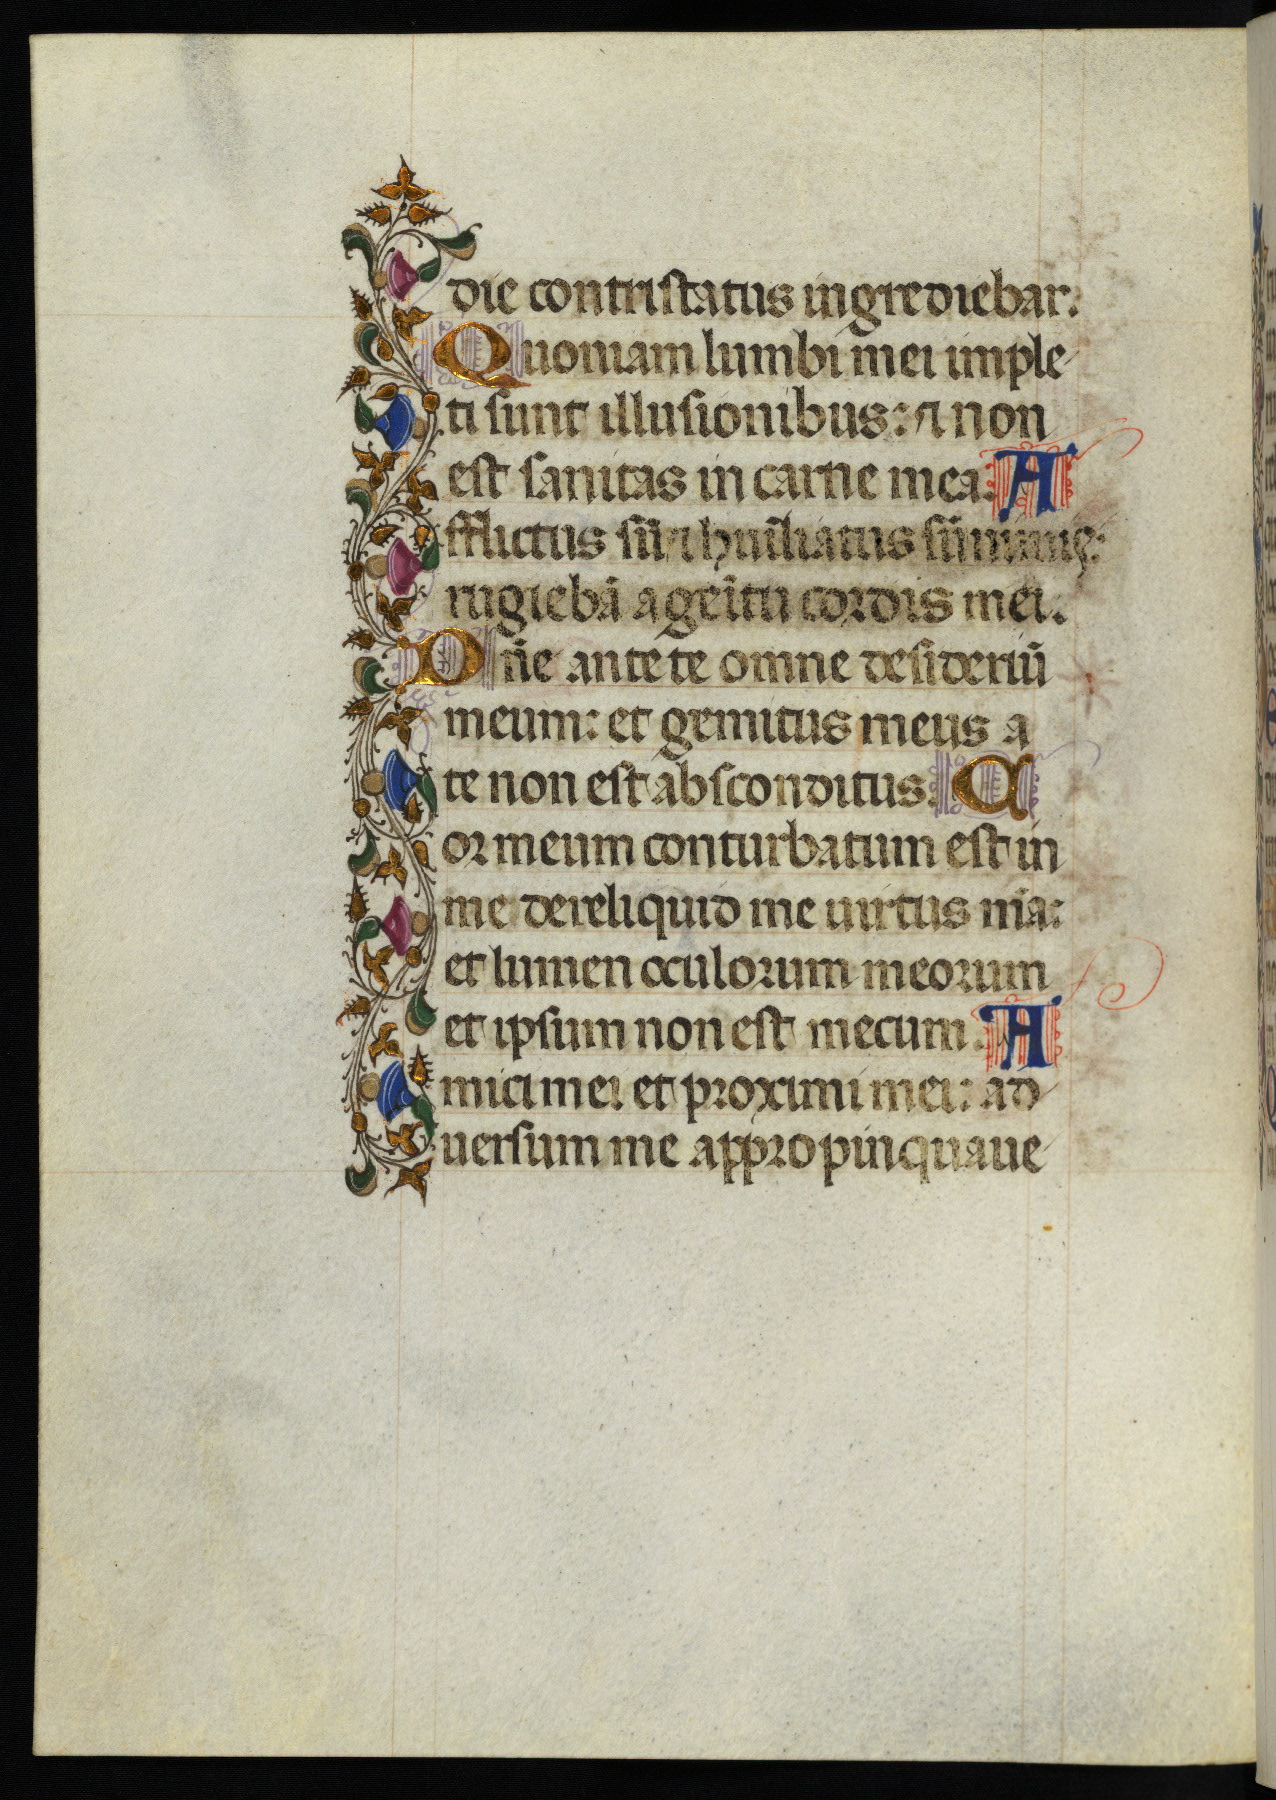 die contristatus ingrediebar.
Quoniam lumbi mei imple
ti sunt illusionibus: ⁊ non
est sanitas in carne mea. A
fflictus sũ ⁊ huĩliatus sũ nimis:
rugiebã a gẽitu cordis mei.
Dñe ante te omne desideriũ
meum: et gemitus meus a
te non est absconditus. C
or meum conturbatum est in
me dereliquid me uirtus m̃a:
et lumen oculorum meorum
et ipsum non est mecum. A
mici mei et proximi mei: ad
uersum me appropinquaue